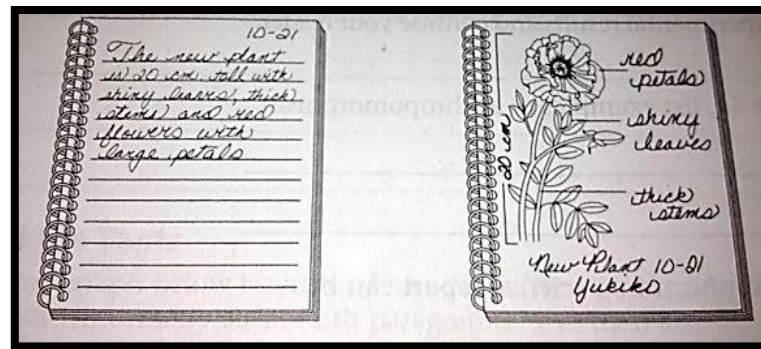 10-21
The new plant
is 20 cm tall with
shiny leaves, thick
stems and red
flowers with
large petals
20 cm
red
petals
shiny
leaves
thick
stems
New Plant 10-21
Yukiko